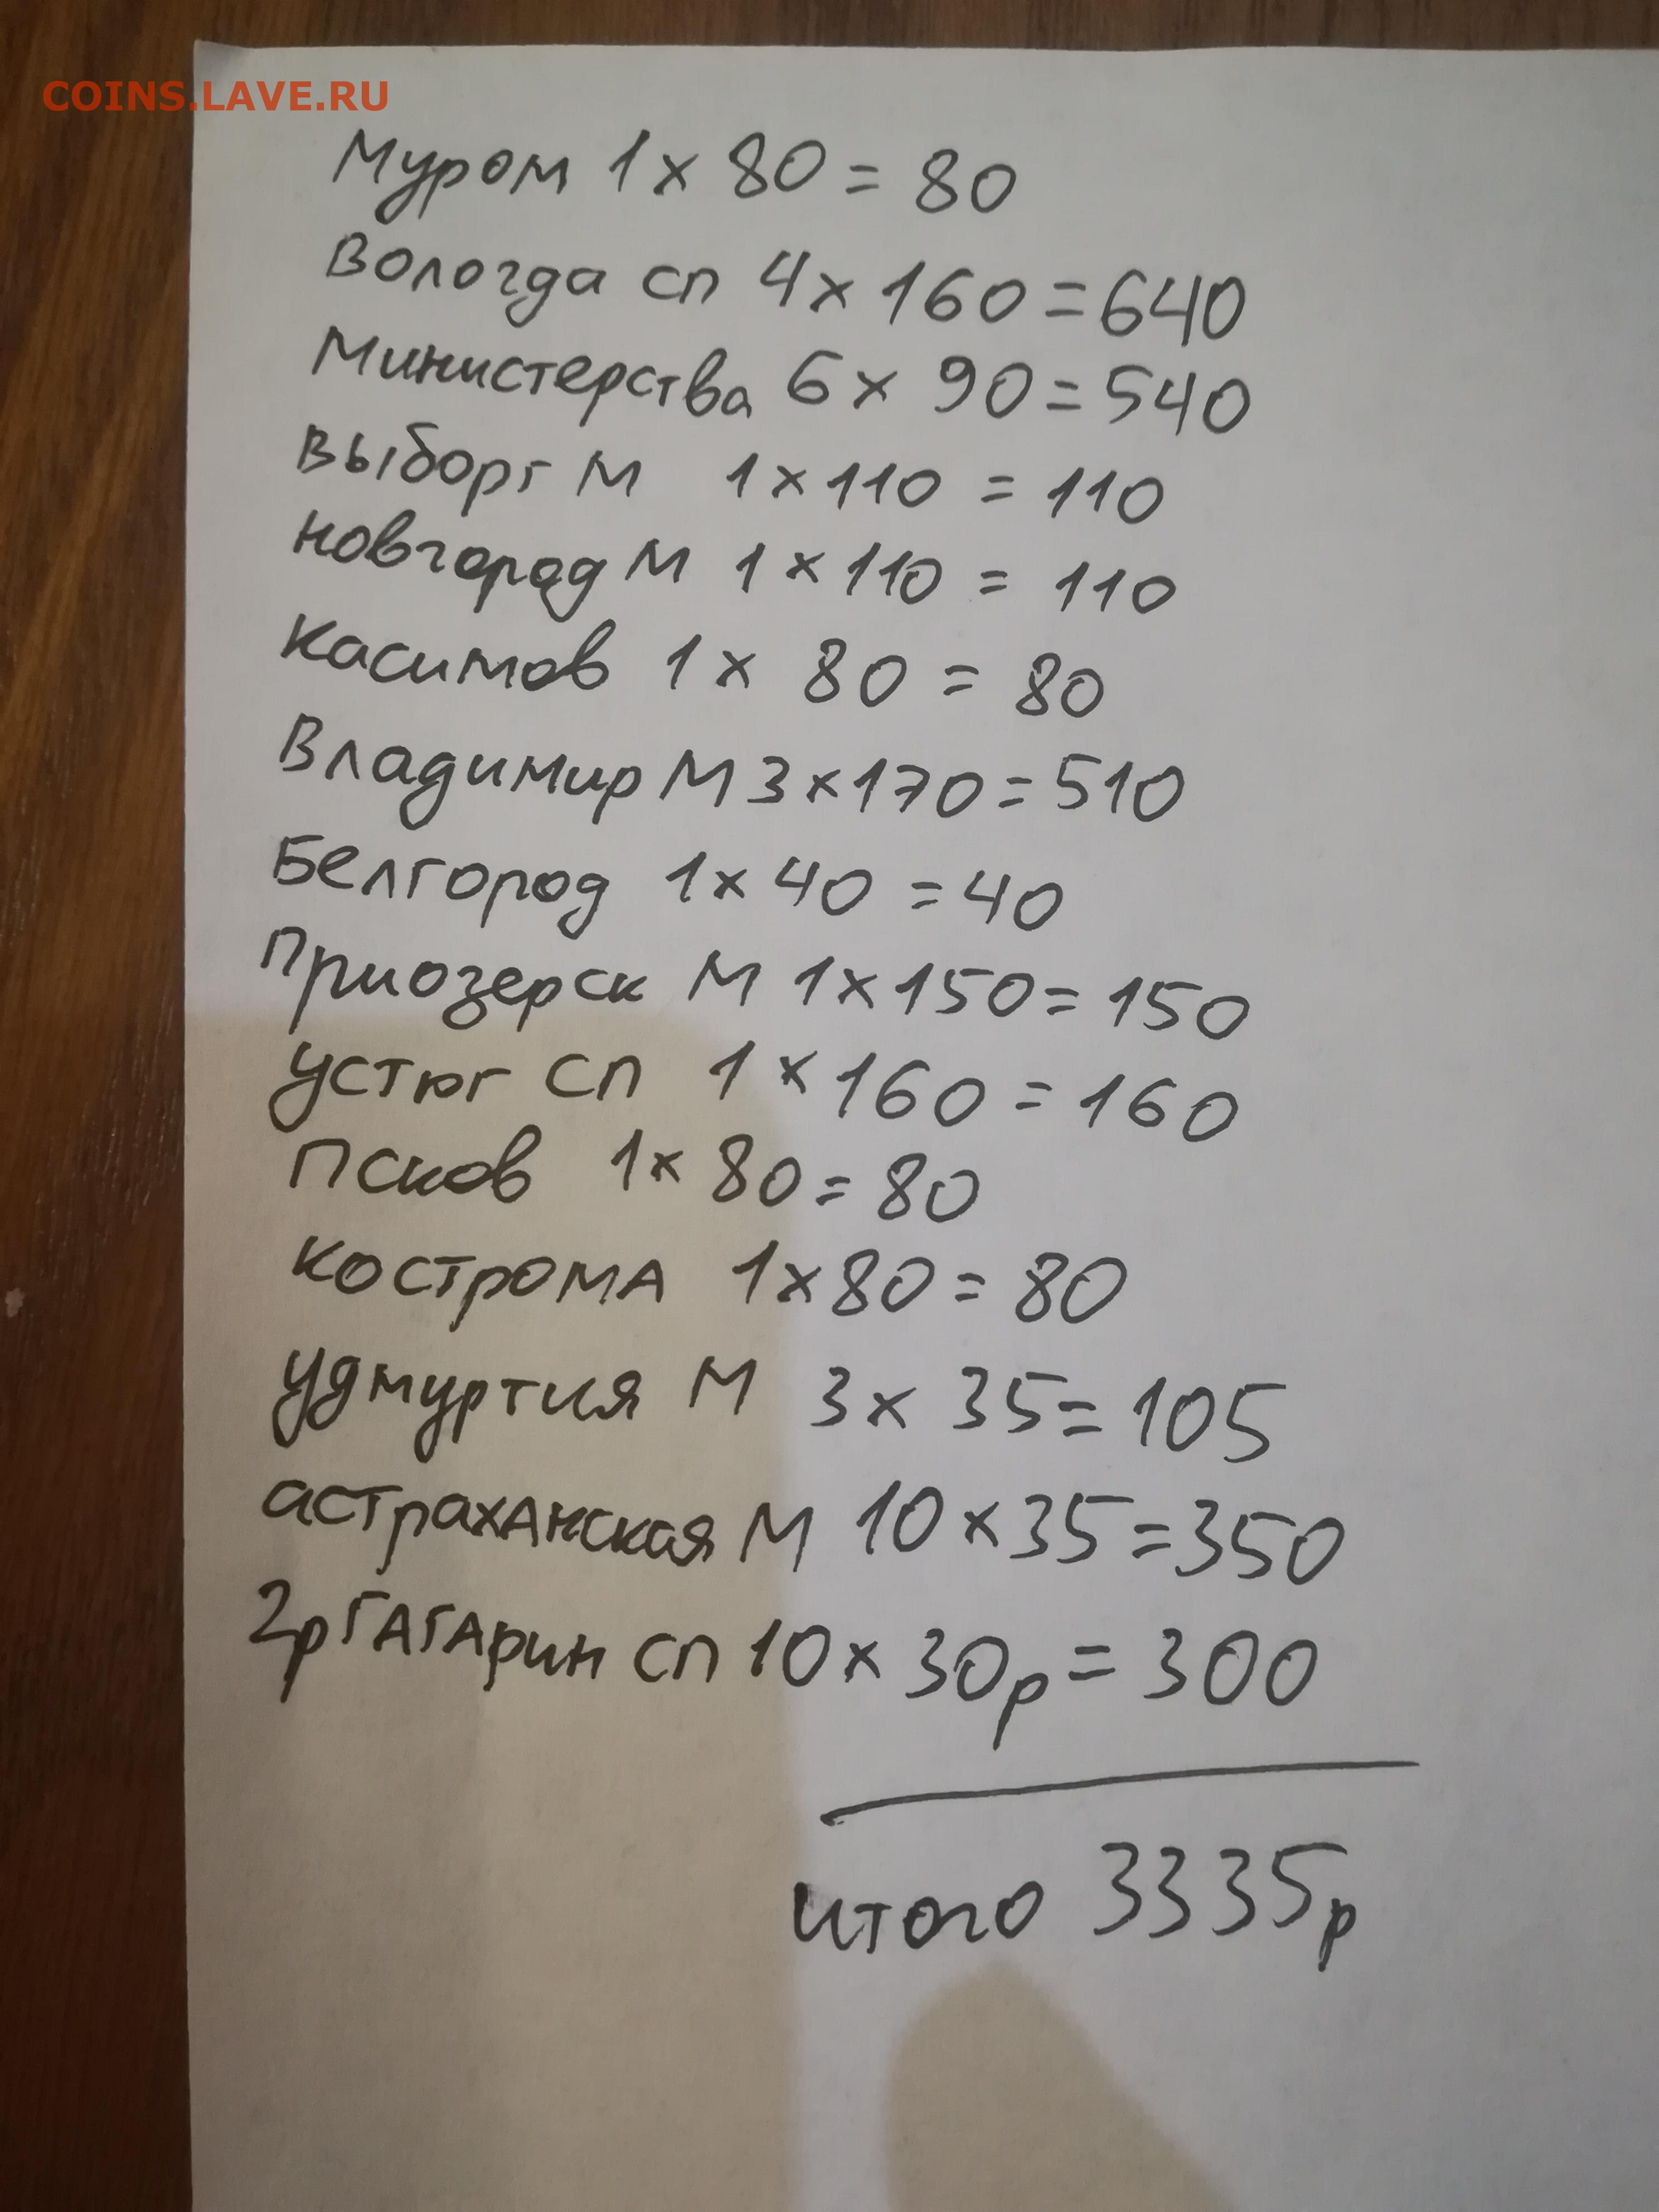 COINS.LAVE.RU
Муром 1 x 80 = 80
Вологда сп 4 x 160 = 640
Министерства 6 x 90 = 540
Выборг М 1 x 110 = 110
Новгород М 1 x 110 = 110
Касимов 1 x 80 = 80
Владимир М 3 x 170 = 510
Белгород 1 x 40 = 40
Приозерск М 1 x 150 = 150
Устюг сп 1 x 160 = 160
Псков 1 x 80 = 80
Кострома 1 x 80 = 80
Удмуртия М 3 x 35 = 105
астраханская М 10 x 35 = 350
2р ГАГАРИН сп 10 x 30р = 300
итого 3335р